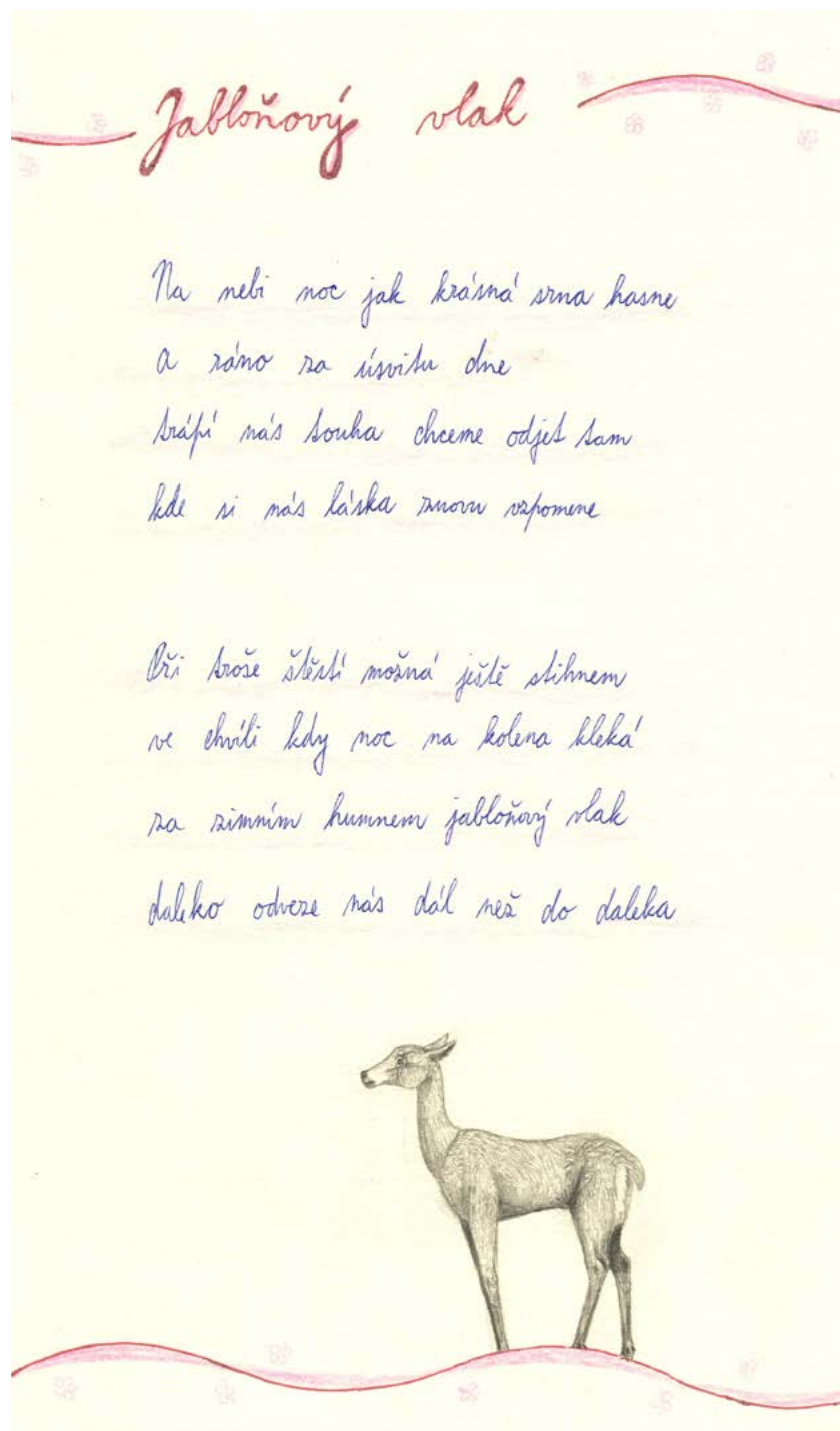 Jabloňový vlak
Na nebi noc jak krásná srna hasne
a ráno za úsvitu dne
trápí nás touha chceme odjet tam
kde si nás láska znovu vzpomene
Při troše štěstí možná ještě stihnem
ve chvíli kdy noc na kolena kleká
za zimním humnem jabloňový vlak
daleko odveze nás dál než do daleka